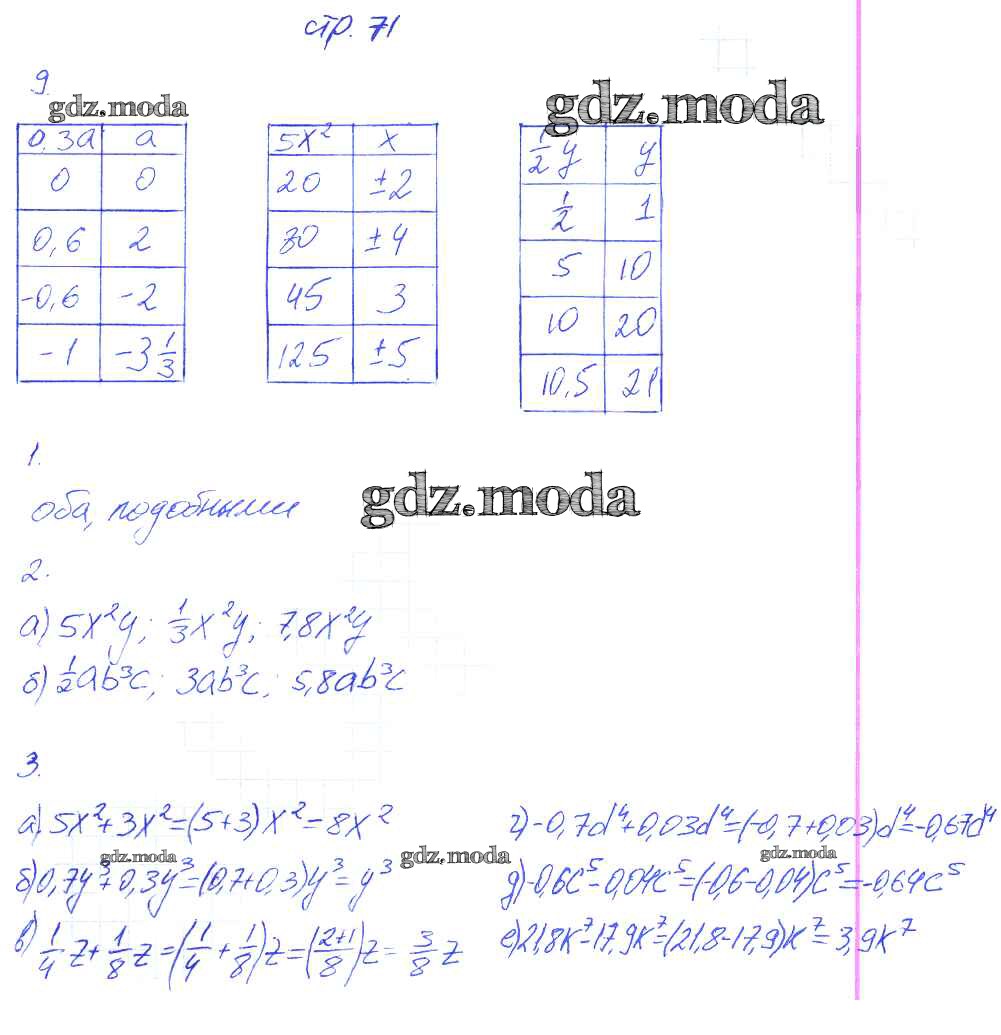 стр. 71
9.
gdz.moda
gdz.moda
0,3a a
0 0
0,6 2
-0,6 -2
-1 -3 1/3
5x² x
20 ±2
80 ±4
45 3
125 ±5
1/2 y y
1/2 1
5 10
10 20
10,5 21
1.
оба, подобными
gdz.moda
2.
а) 5x²y; 1/3 x²y; 7,8x²y
б) 1/2 ab³c; 3ab³c; 5,8ab³c
3.
а) 5x²+3x²=(5+3)x²=8x²
gdz.moda
б) 0,7y³+0,3y³=(0,7+0,3)y³=y³
в) 1/4 z+1/8 z=(1/4+1/8)z=(2+1/8)z=3/8 z
г) -0,7d⁴+0,03d⁴=(-0,7+0,03)d⁴=-0,67d⁴
gdz.moda
gdz.moda
д) -0,6c⁵-0,04c⁵=(-0,6-0,04)c⁵=-0,64c⁵
е) 21,8k⁷-17,9k⁷=(21,8-17,9)k⁷=3,9k⁷